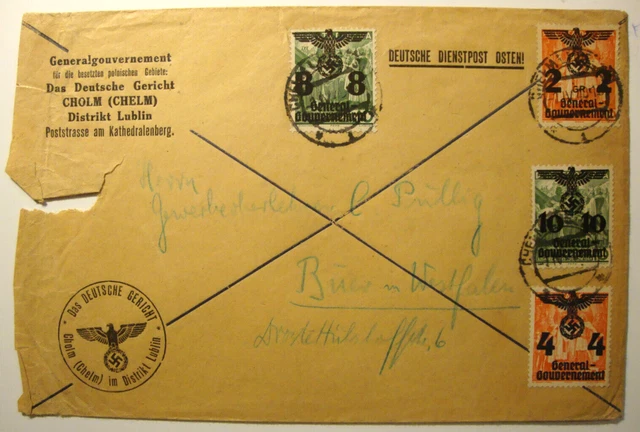 Generalgouvernement
für die besetzten polnischen Gebiete:
Das Deutsche Gericht
CHOLM (CHELM)
Distrikt Lublin
Poststrasse am Kathedralenberg.
DEUTSCHE DIENSTPOST OSTEN!
8 8
General-
Gouvernement
2 2
GR.
General-
Gouvernement
10 10
General-
Gouvernement
4 4
General-
Gouvernement
Herrn
C
Buer in Westfalen
6
Das DEUTSCHE GERICHT
Cholm (Chelm) im Distrikt Lublin